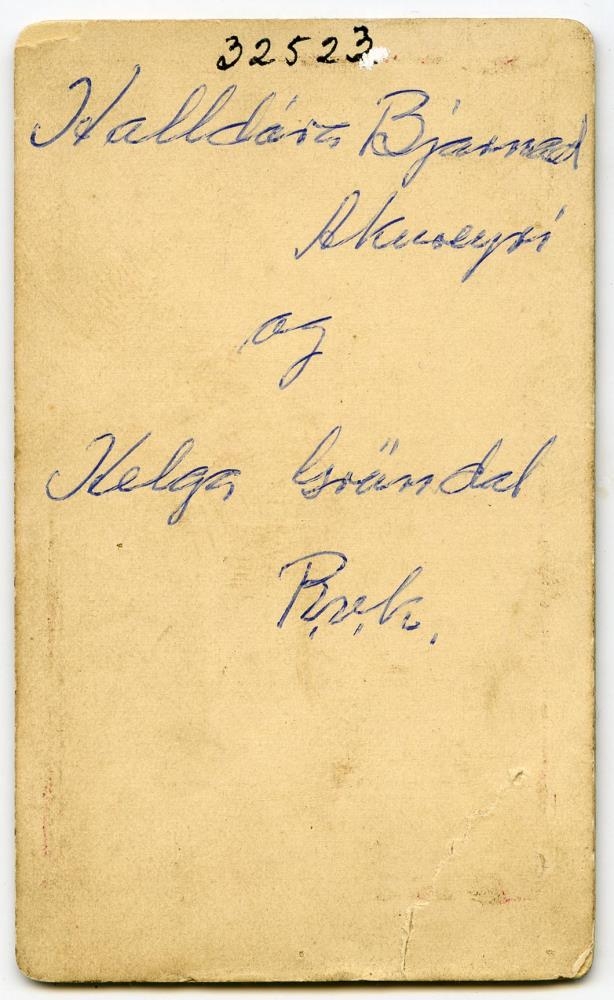 32523
Halldóra Bjarnad
Akureyri
og
Helga Gröndal
R.v.k.